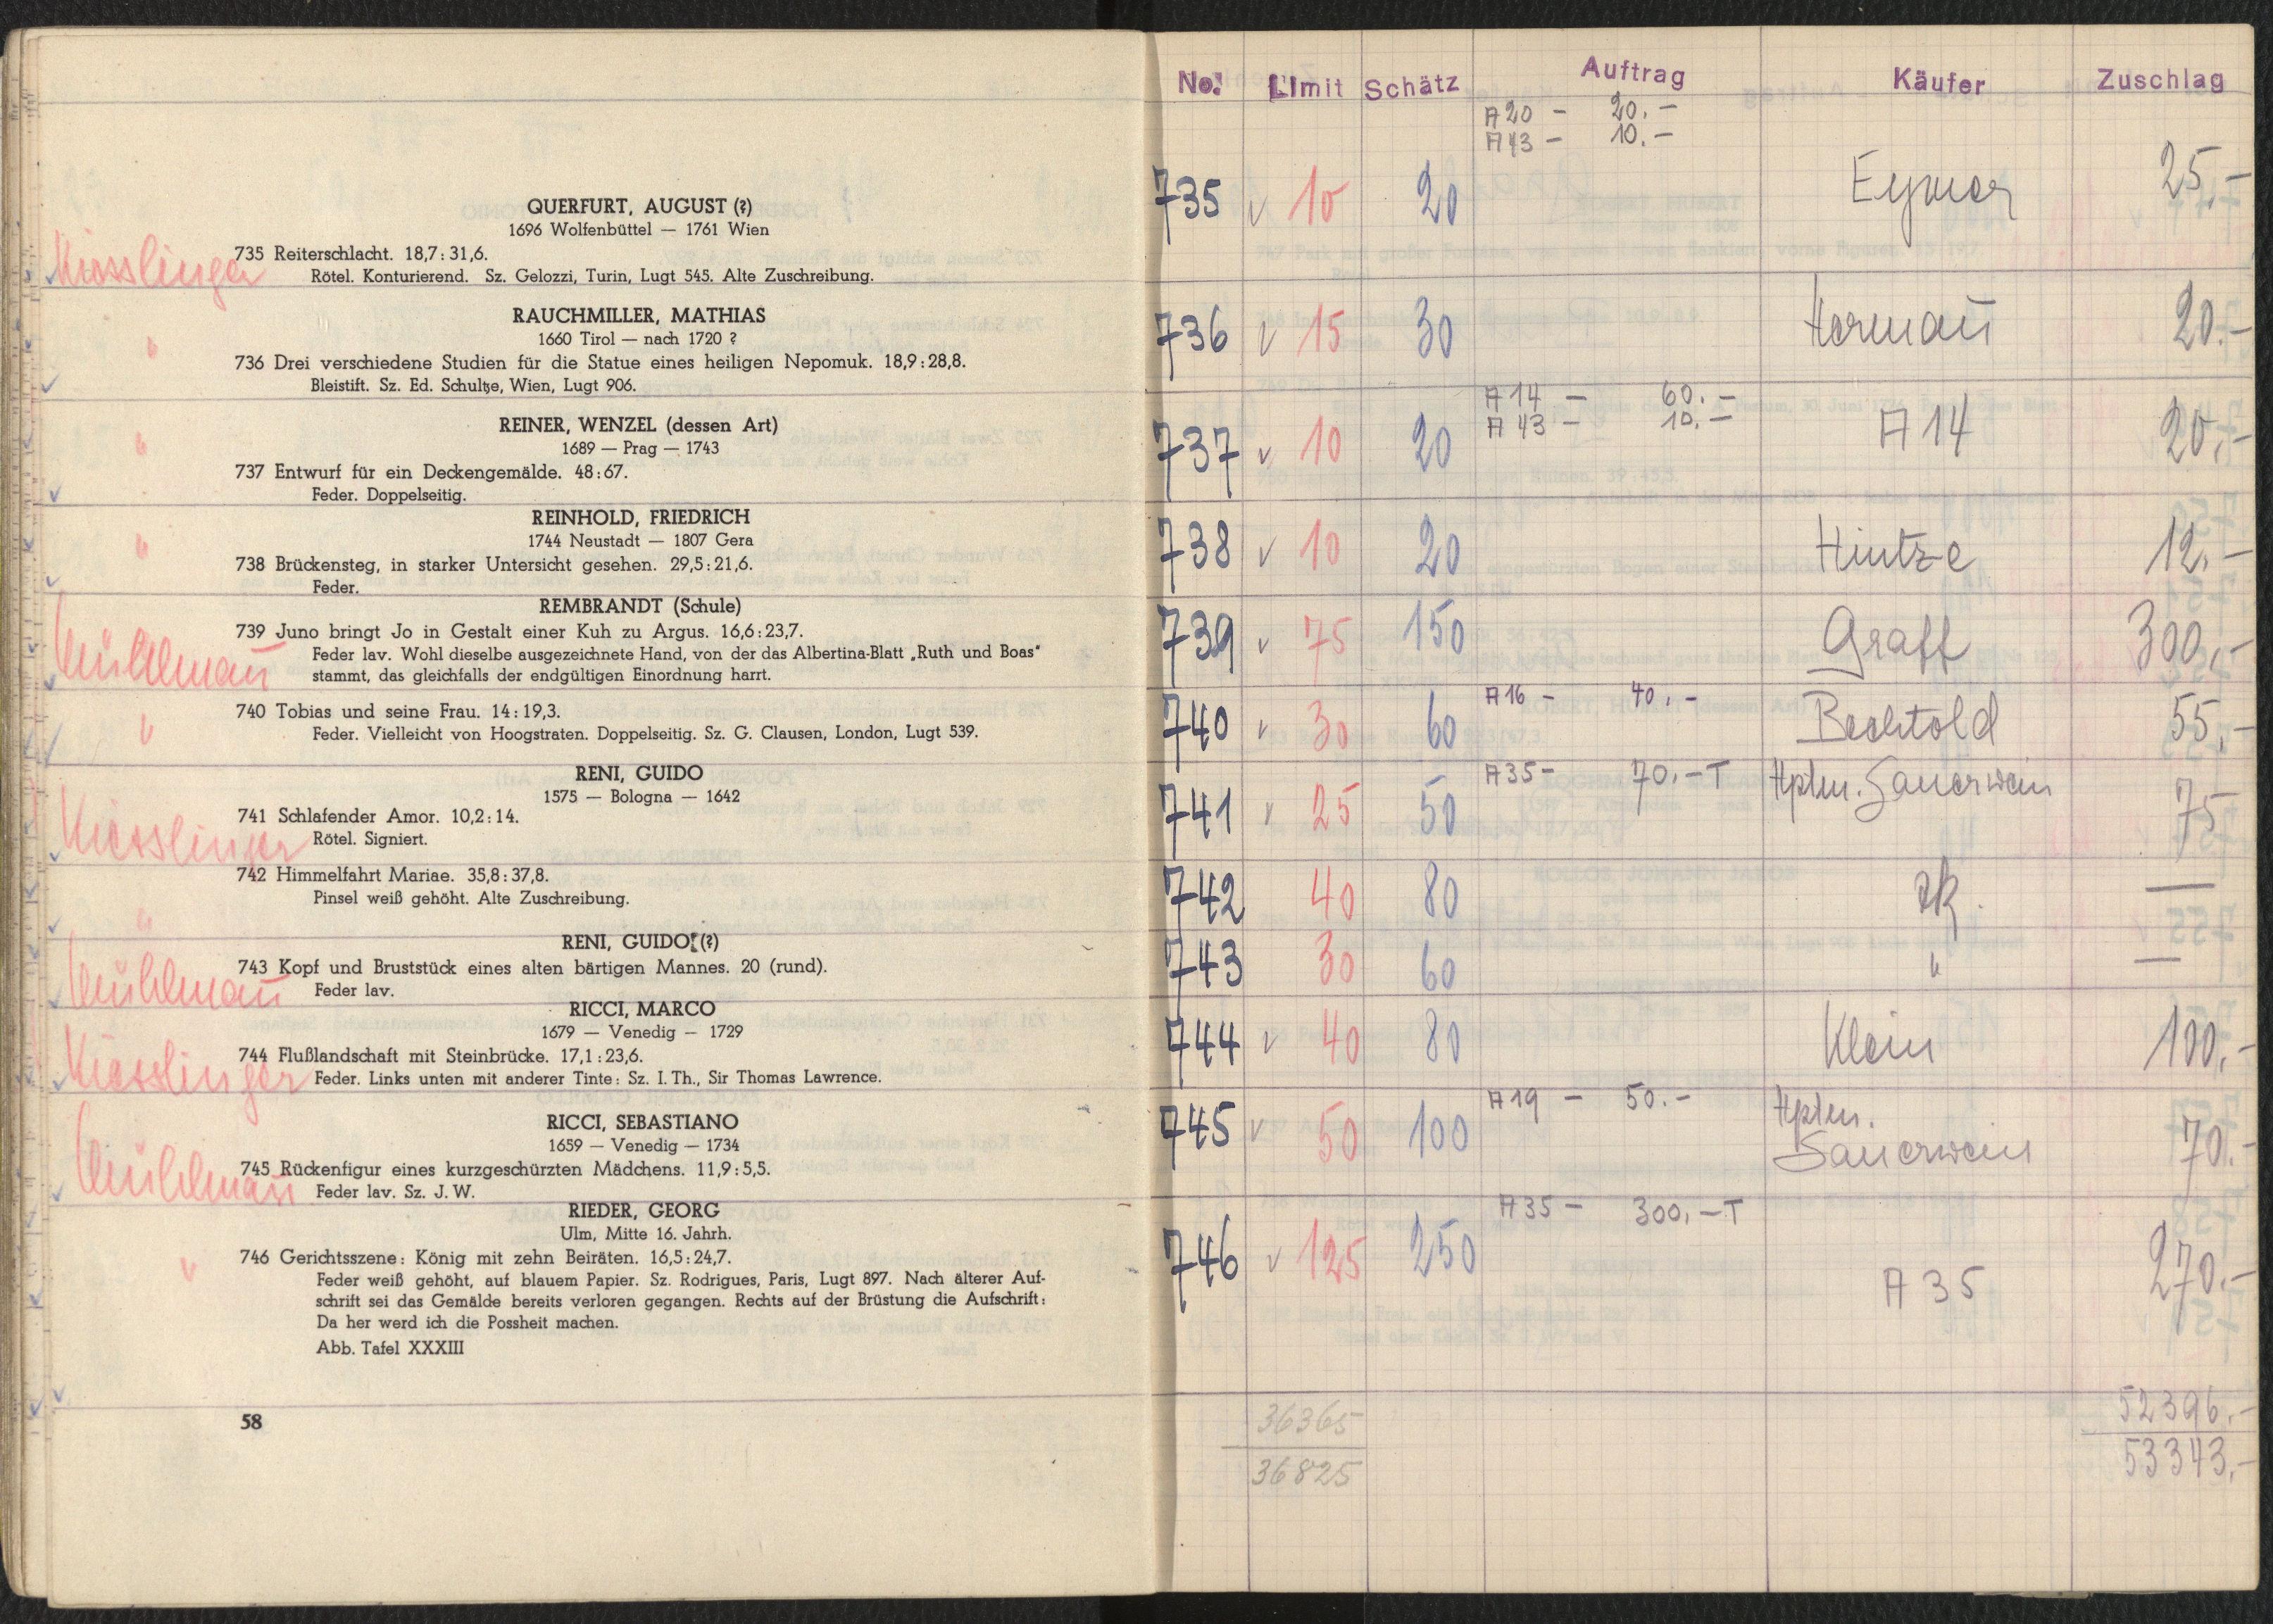 QUERFURT, AUGUST (?)
1696 Wolfenbüttel — 1761 Wien
735 Reiterschlacht. 18,7 : 31,6.
Rötel. Konturierend. Sz. Gelozzi, Turin, Lugt 545. Alte Zuschreibung.
Kiesslinger
RAUCHMILLER, MATHIAS
1660 Tirol — nach 1720 ?
"
736 Drei verschiedene Studien für die Statue eines heiligen Nepomuk. 18,9 : 28,8.
Bleistift. Sz. Ed. Schultze, Wien, Lugt 906.
REINER, WENZEL (dessen Art)
1689 — Prag — 1743
"
737 Entwurf für ein Deckengemälde. 48 : 67.
Feder. Doppelseitig.
REINHOLD, FRIEDRICH
1744 Neustadt — 1807 Gera
"
738 Brückensteg, in starker Untersicht gesehen. 29,5 : 21,6.
Feder.
REMBRANDT (Schule)
739 Juno bringt Jo in Gestalt einer Kuh zu Argus. 16,6 : 23,7.
Feder lav. Wohl dieselbe ausgezeichnete Hand, von der das Albertina-Blatt „Ruth und Boas"
stammt, das gleichfalls der endgültigen Einordnung harrt.
Mühlmañ
740 Tobias und seine Frau. 14 : 19,3.
"
Feder. Vielleicht von Hoogstraten. Doppelseitig. Sz. G. Clausen, London, Lugt 539.
RENI, GUIDO
1575 — Bologna — 1642
741 Schlafender Amor. 10,2 : 14.
Rötel. Signiert.
Kiesslinger
742 Himmelfahrt Mariae. 35,8 : 37,8.
Pinsel weiß gehöht. Alte Zuschreibung.
"
RENI, GUIDO (?)
743 Kopf und Bruststück eines alten bärtigen Mannes. 20 (rund).
Feder lav.
Mühlmañ
RICCI, MARCO
1679 — Venedig — 1729
744 Flußlandschaft mit Steinbrücke. 17,1 : 23,6.
Feder. Links unten mit anderer Tinte: Sz. I. Th., Sir Thomas Lawrence.
Kiesslinger
RICCI, SEBASTIANO
1659 — Venedig — 1734
745 Rückenfigur eines kurzgeschürzten Mädchens. 11,9 : 5,5.
Feder lav. Sz. J. W.
Mühlmañ
RIEDER, GEORG
Ulm, Mitte 16. Jahrh.
746 Gerichtsszene: König mit zehn Beiräten. 16,5 : 24,7.
"
Feder weiß gehöht, auf blauem Papier. Sz. Rodrigues, Paris, Lugt 897. Nach älterer Auf-
schrift sei das Gemälde bereits verloren gegangen. Rechts auf der Brüstung die Aufschrift:
Da her werd ich die Possheit machen.
Abb. Tafel XXXIII
58
No. Limit Schätz Auftrag Käufer Zuschlag
A 20 — 20.—
A 43 — 10.—
735 v 10 20 Eymer 25,—
736 v 15 30 Hermañ 20.—
A 14 — 60.—
A 43 — 10.—
737 v 10 20 A 14 20,—
738 v 10 20 Hintze 12.—
739 v 75 150 Graff 300,—
A 16 — 40.—
740 v 30 60 Bechtold 55,—
A 35 — 70.— T
741 v 25 50 Hptm. Sauerwein 75
742 40 80 zk. —
743 30 60 " —
744 v 40 80 Klein 100,—
A 19 — 50.—
745 v 50 100 Hptm. Sauerwein 70.—
A 35 — 300,— T
746 v 125 250 A 35 270.—
36365 52396.—
36825 53343,—